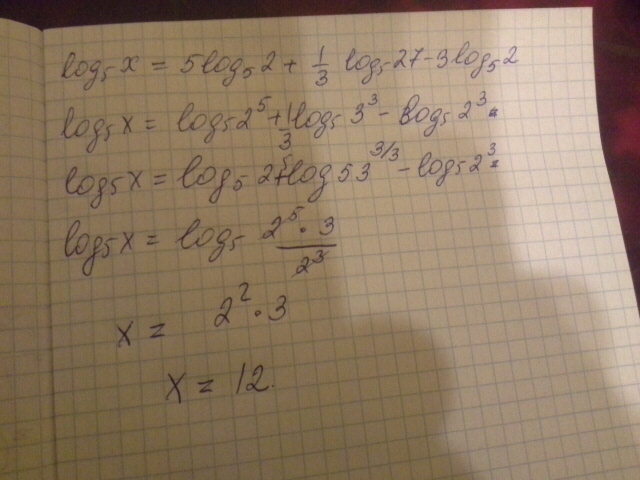 log₅ x = 5log₅2 + 1/3 log₅27 - 3log₅2
log₅x = log₅2⁵ + 1/3 log₅3³ - log₅2³ =
log₅x = log₅2⁵ + log₅3^(3/3) - log₅2³ =
log₅x = log₅ (2⁵·3)/2³
x = 2²·3
x = 12.